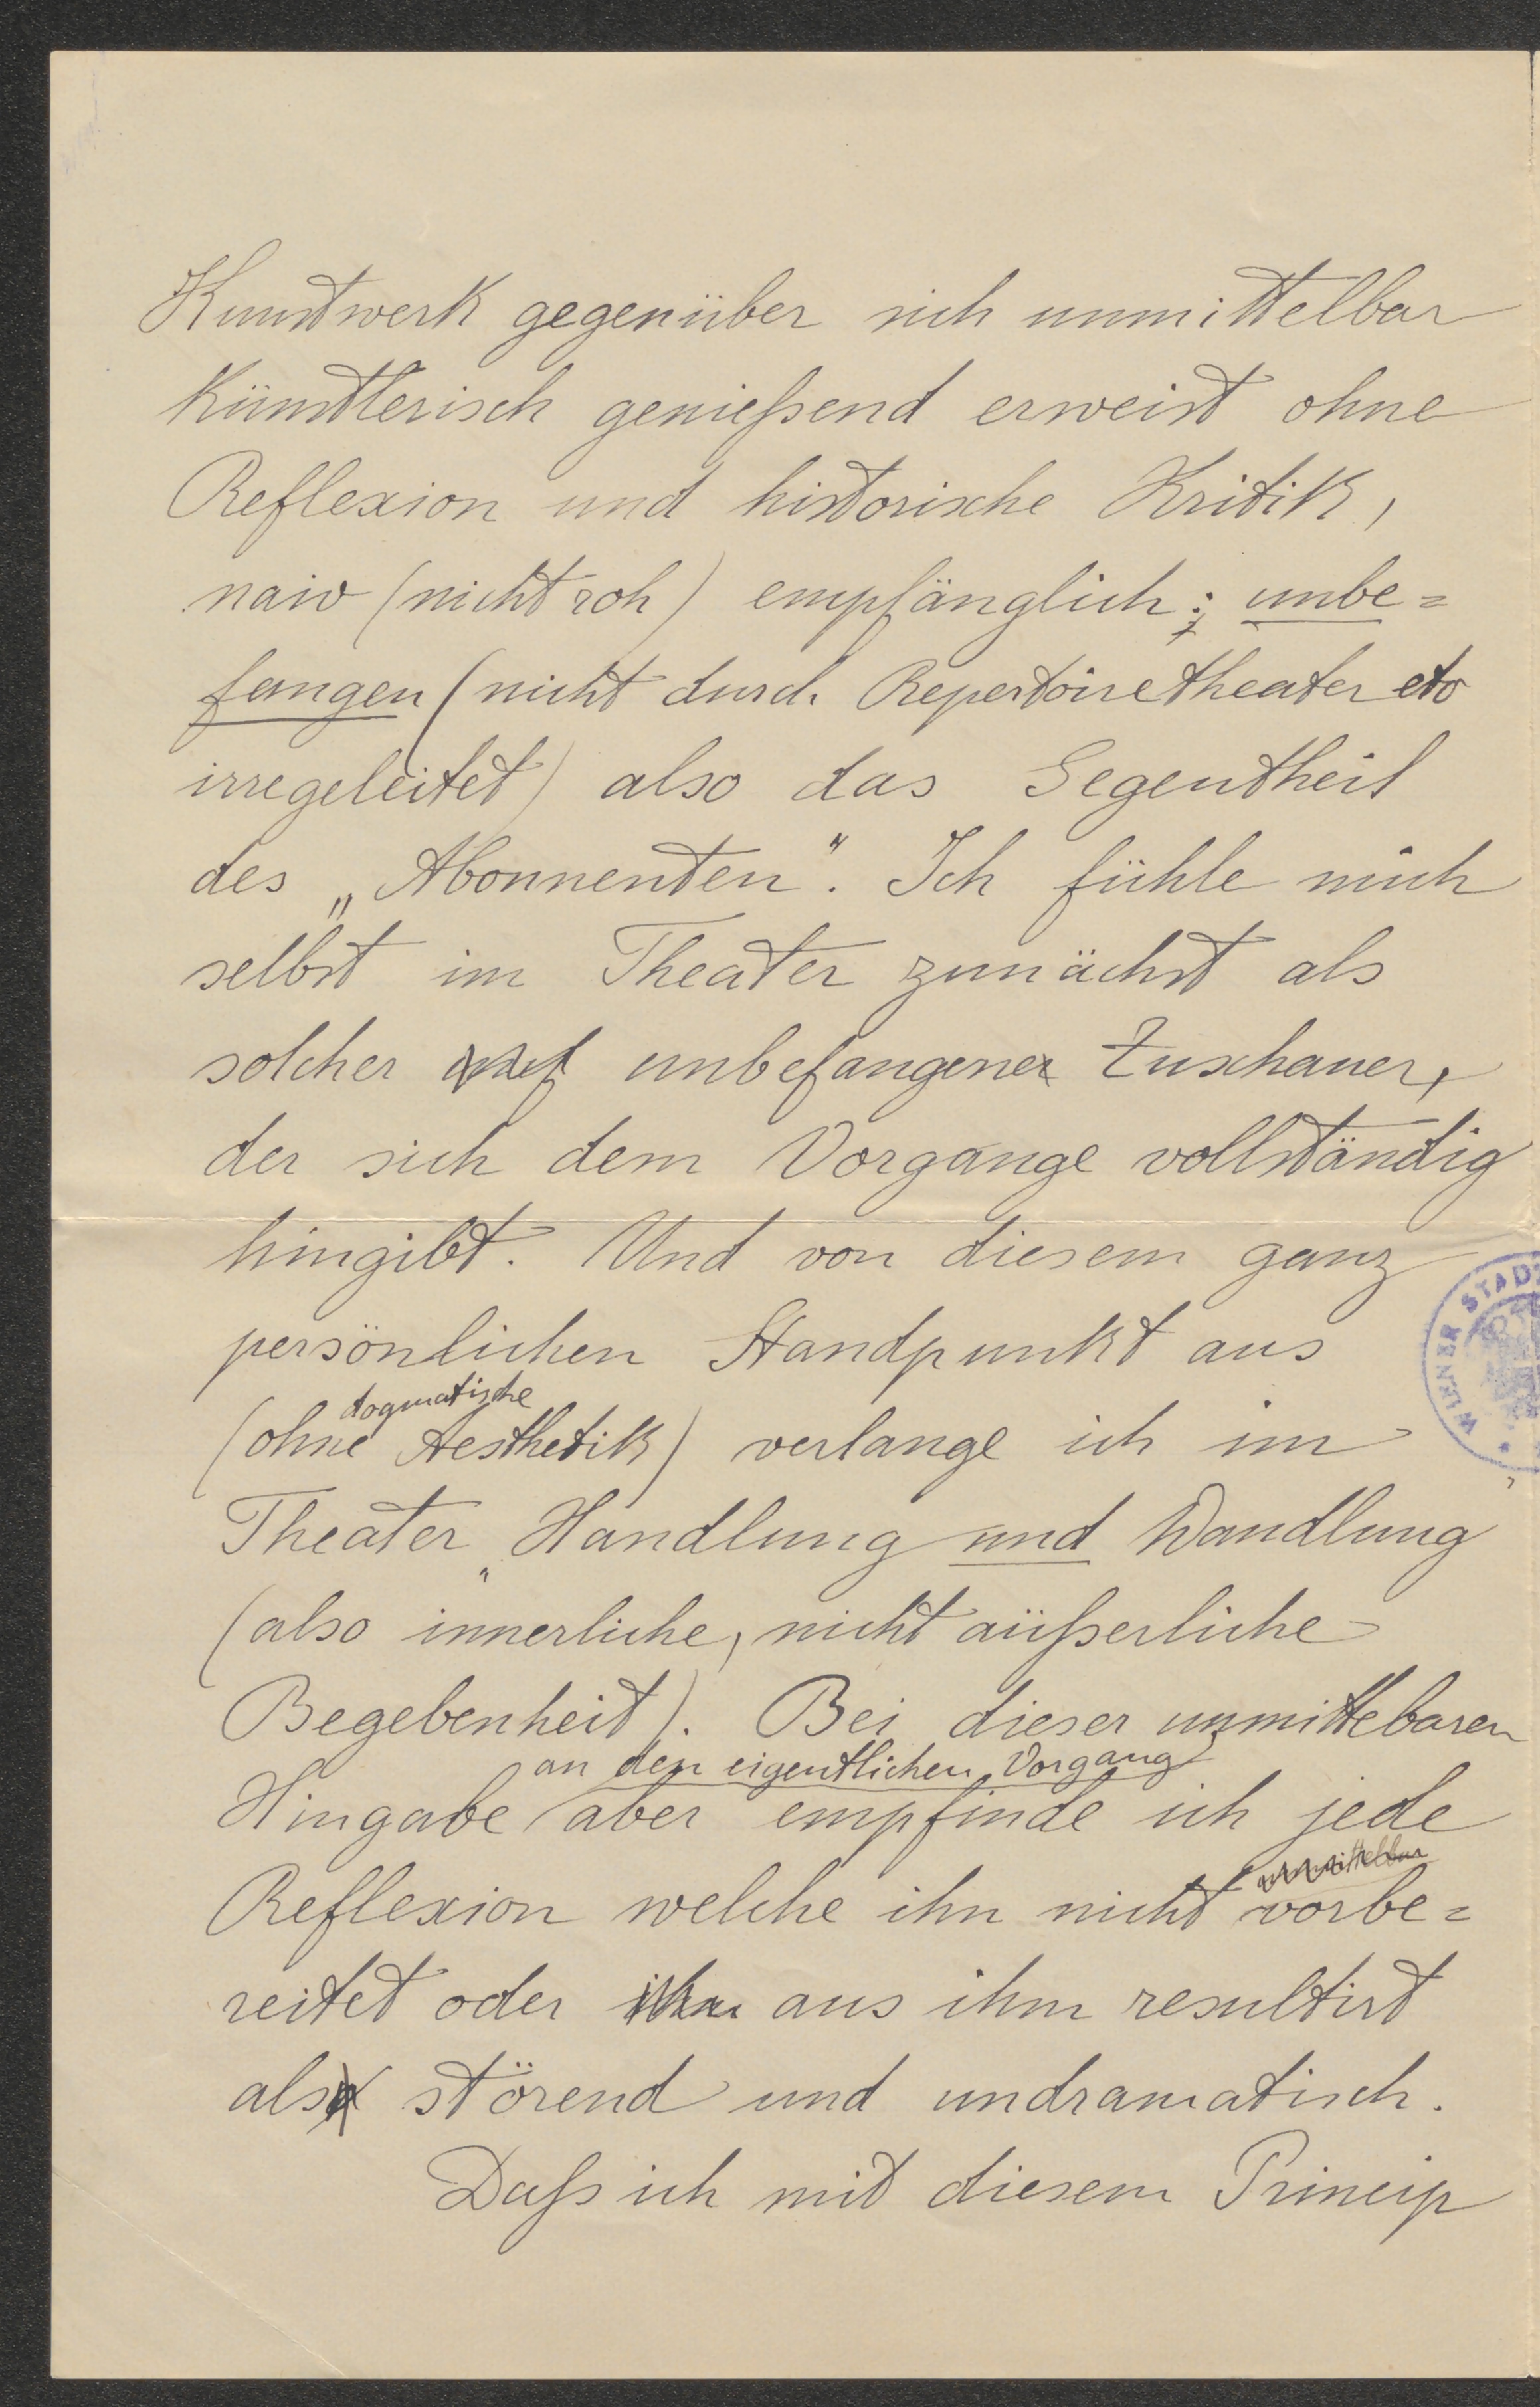 Kunstwerk gegenüber sich unmittelbar
künstlerisch genießend erweist ohne
Reflexion und historische Kritik,
naiv (nicht roh) empfänglich; unbe=
fangen (nicht durch Repertoiretheater etc
irregeleitet) also das Gegentheil
des „Abonnenten“. Ich fühle mich
selbst im Theater zunächst als
solcher unbefangener Zuschauer,
der sich dem Vorgange vollständig
hingibt. Und von diesem ganz
persönlichen Standpunkt aus
dogmatische
(ohne Aesthetik) verlange ich im
Theater „Handlung und Wandlung
(also innerliche, nicht äußerliche
Begebenheit). Bei dieser unmittebaren
an den eigentlichen Vorgang
Hingabe aber empfinde ich jede
unmittelbar
Reflexion welche ihn nicht vorbe=
reitet oder ihm aus ihm resultirt
als störend und undramatisch.
Daß ich mit diesem Princip
WIENER STAD